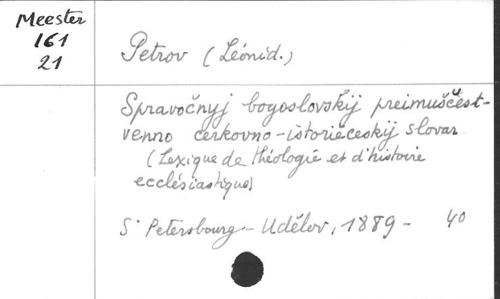 Meester
161
21
Petrov (Léonid.)
Spravočnyj bogoslovskij preimuščest-
venno cerkovno-istoričeskij slovar
(Lexique de théologie et d'histoire
ecclésiastique)
S' Petersbourg - Udělov, 1889 - 40